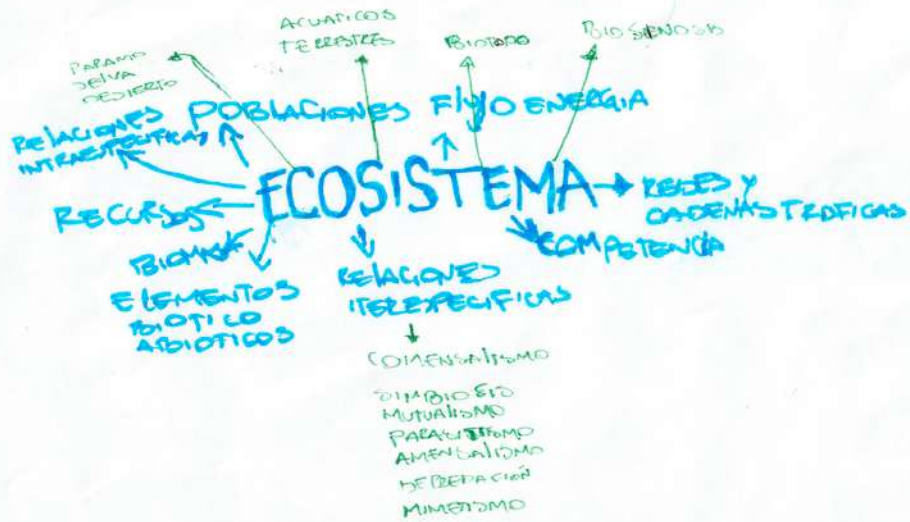 ACUATICOS
TERRESTRES
BIOTOPO
BIOSENOSIS
PARAMO
SELVA
DESIERTO
RELACIONES
INTRAESPECIFICAS
POBLACIONES
FLUJO ENERGIA
ECOSISTEMA
REDES Y
CADENAS TROFICAS
RECURSOS
COMPETENCIA
BIOMAS
ELEMENTOS
BIOTICO
ABIOTICOS
RELACIONES
ITERESPECIFICAS
COMENSALISMO
SIMBIOSIS
MUTUALISMO
PARASITISMO
AMENSALISMO
DEPREDACIÓN
MIMETISMO